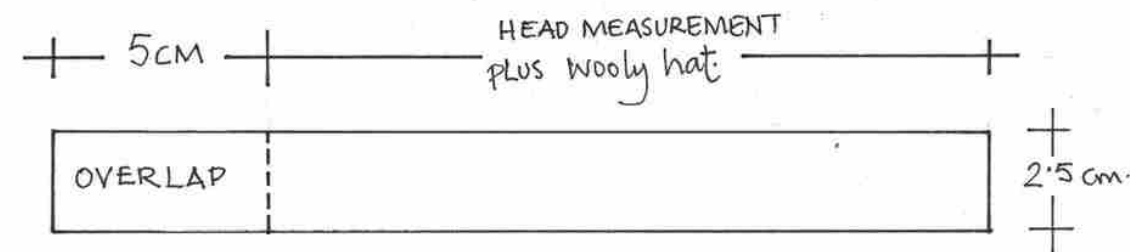 5CM
HEAD MEASUREMENT
PLUS wooly hat.
OVERLAP
2.5 cm.